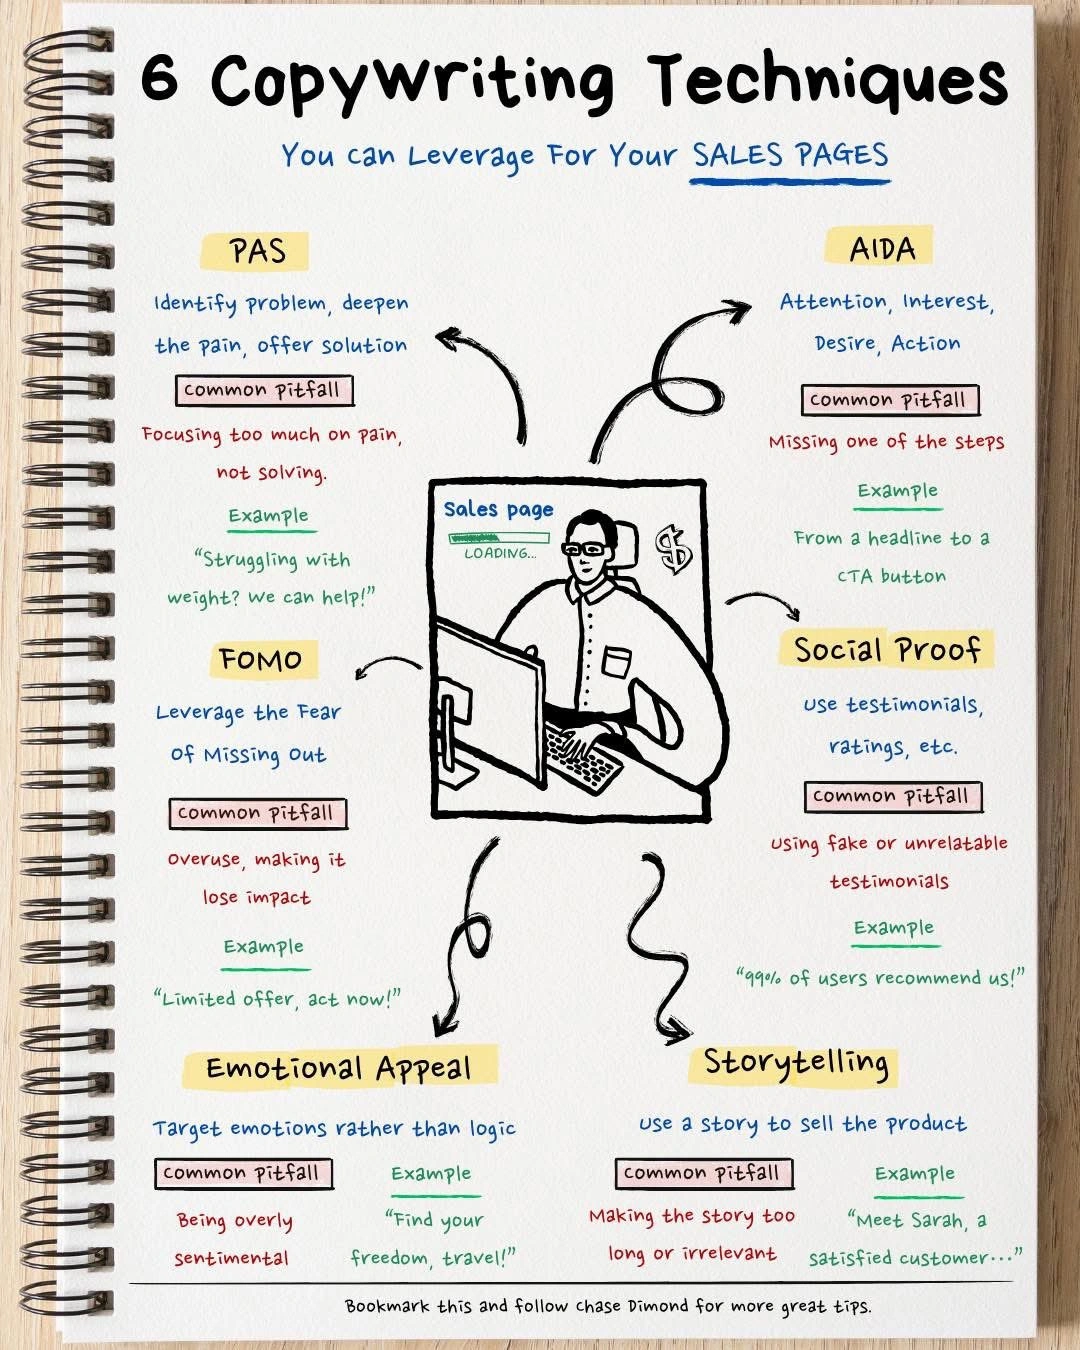 6 Copywriting Techniques
You can Leverage For Your SALES PAGES
PAS
Identify problem, deepen
the pain, offer solution
Common Pitfall
Focusing too much on pain,
not solving.
Example
"Struggling with
weight? We can help!"
AIDA
Attention, Interest,
Desire, Action
Common Pitfall
Missing one of the steps
Example
From a headline to a
CTA button
Sales page
LOADING...
$
FOMO
Leverage the Fear
of Missing Out
Common Pitfall
Overuse, making it
lose impact
Example
"Limited offer, act now!"
Social Proof
Use testimonials,
ratings, etc.
Common Pitfall
Using fake or unrelatable
testimonials
Example
"99% of users recommend us!"
Emotional Appeal
Target emotions rather than logic
Common Pitfall
Being overly
sentimental
Example
"Find your
freedom, travel!"
Storytelling
Use a story to sell the product
Common Pitfall
Making the story too
long or irrelevant
Example
"Meet Sarah, a
satisfied customer..."
Bookmark this and follow Chase Dimond for more great tips.